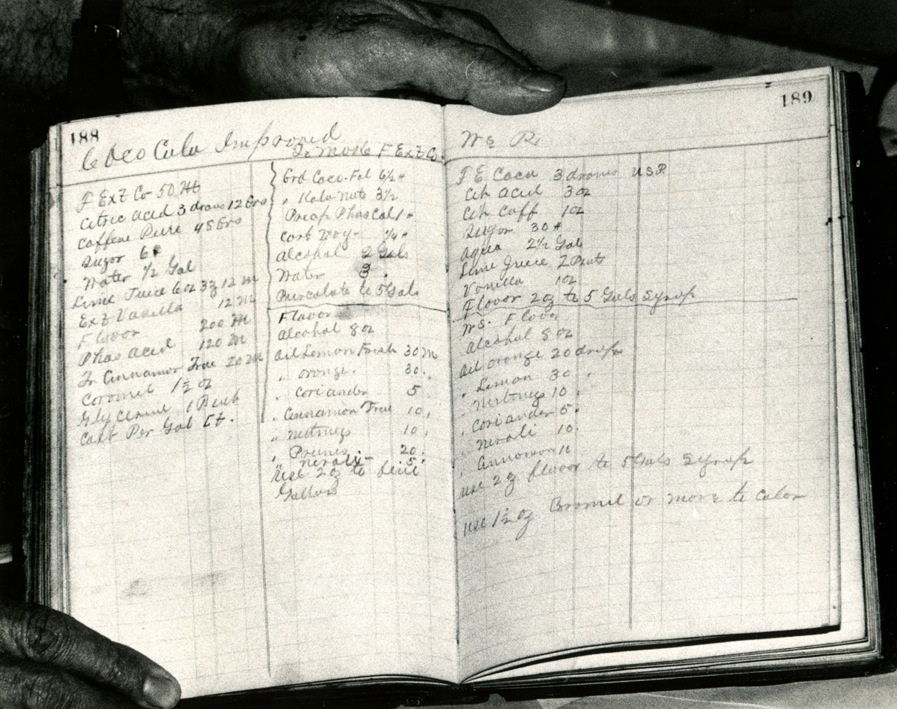 188
Coco Cola Improved
F Ext Co 50
Citric Acid 3 drams 12 Grs
Caffene Pure 45 Grs
Sugar 6 #
Water 1/2 Gal
Lime Juice 6 oz 12 M
Ext Vanilla 12 M
Flavor
Phos Acid 200 M
120 M
Tr Cinnamon True 20 M
Caramel 1½ oz
Glycerine 1 Pint
Cost Per Gal
To Make F Ext Co
Grd Coca
" Kola nuts 3½
Precip Phos Cal 1 #
Alcohol 2 Gals
Water 3 "
Percolate to 5 Gals
Flavor
Alcohol 8 oz
Oil Lemon Fresh 30 M
" orange 30 "
" coriander 5 "
" Cinnamon True 10 "
" Nutmegs 10 "
" Prunes 20 "
" neroli 5 "
use 2 oz to five
Gallons
189
F E Coca 3 drams USP
Cit Acid 3 oz
Cit Caff 1 oz
Sugar 30 #
Aqua 2½ Gal
Lime Juice 2 Pints
Vanilla 1 oz
Flavor 2 oz to 5 Gals Syrup
Flavor
Alcohol 8 oz
Oil orange 20 drops
" Lemon 30 "
" Nutmegs 10 "
" Coriander 5 "
" Neroli 10 "
" Cinnamon 10
use 2 oz flavor to 5 Gals Syrup
use 1½ oz or more to color